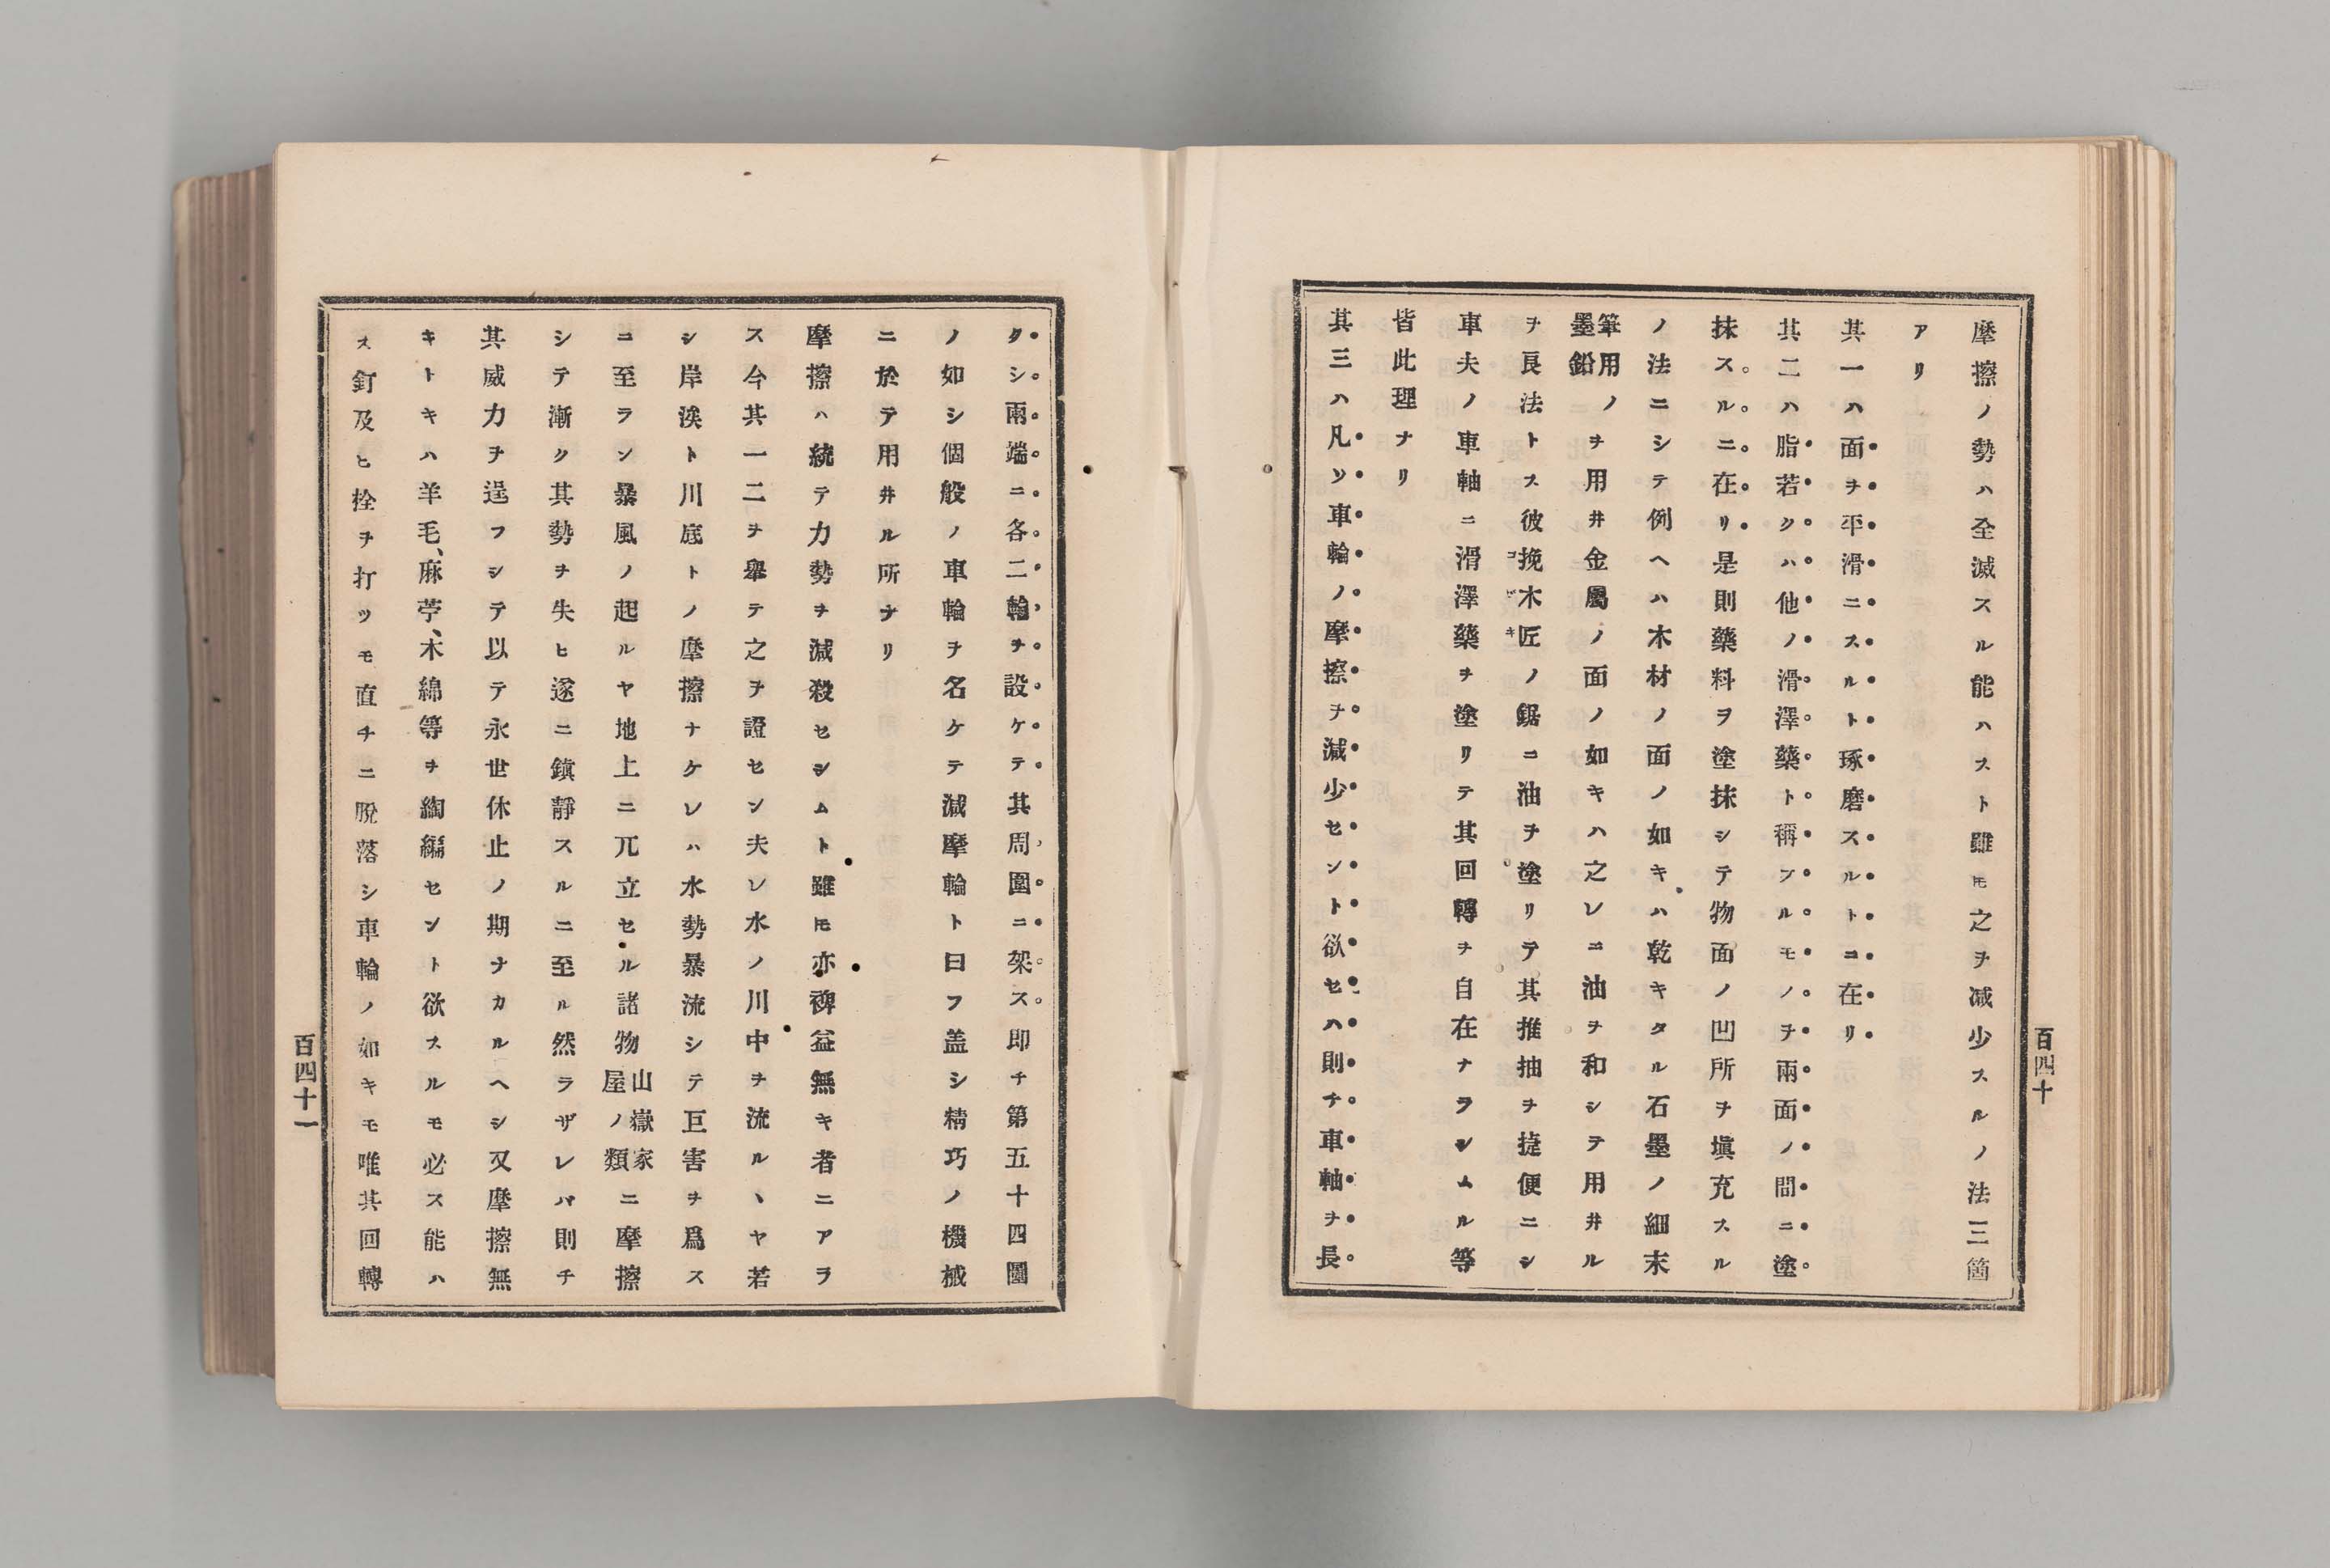 百四十
摩擦ノ勢ハ全滅スル能ハスト雖𪜈之ヲ减少スルノ法三箇
アリ
其一ハ面ヲ平滑ニスルト琢磨スルトニ在リ
其二ハ脂若クハ他ノ滑澤藥ト稱フルモノヲ兩面ノ間ニ塗
抹スルニ在リ是則藥料ヲ塗抹シテ物面ノ凹所ヲ塡充スル
ノ法ニシテ例ヘハ木材ノ面ノ如キハ乾キタル石墨ノ細末
筆用ノ墨鉛ヲ用井金屬ノ面ノ如キハ之レニ油ヲ和シテ用井ル
ヲ良法トス彼挽木匠コビキノ鋸ニ油ヲ塗リテ其推抽ヲ捷便ニシ
車夫ノ車軸ニ滑澤藥ヲ塗リテ其回轉ヲ自在ナラシムル等
皆此理ナリ
其三ハ凡ソ車輪ノ摩擦ヲ減少セント欲セハ則チ車軸ヲ長
クシ兩端ニ各二輪ヲ設ケテ其周圍ニ架ス即チ第五十四圖
ノ如シ個般ノ車輪ヲ名ケテ減摩輪ト曰フ盖シ精巧ノ機械
ニ於テ用井ル所ナリ
摩擦ハ統テ力勢ヲ減殺セシムト雖𪜈亦裨益無キ者ニアラ
ス今其一二ヲ擧テ之ヲ證セン夫レ水ノ川中ヲ流ルヽヤ若
シ岸涘ト川底トノ摩擦ナケレハ水勢暴流シテ巨害ヲ爲ス
ニ至ラン暴風ノ起ルヤ地上ニ兀立セル諸物山嶽家屋ノ類ニ摩擦
シテ漸ク其勢ヲ失ヒ遂ニ鎭靜スルニ至ル然ラザレバ則チ
其威力ヲ逞フシテ以テ永世休止ノ期ナカルヘシ又摩擦無
キトキハ羊毛、麻苧、木綿等ヲ綯編セント欲スルモ必ス能ハ
ス釘及ヒ栓ヲ打ツモ直チニ脫落シ車輪ノ如キモ唯其回轉
百四十一